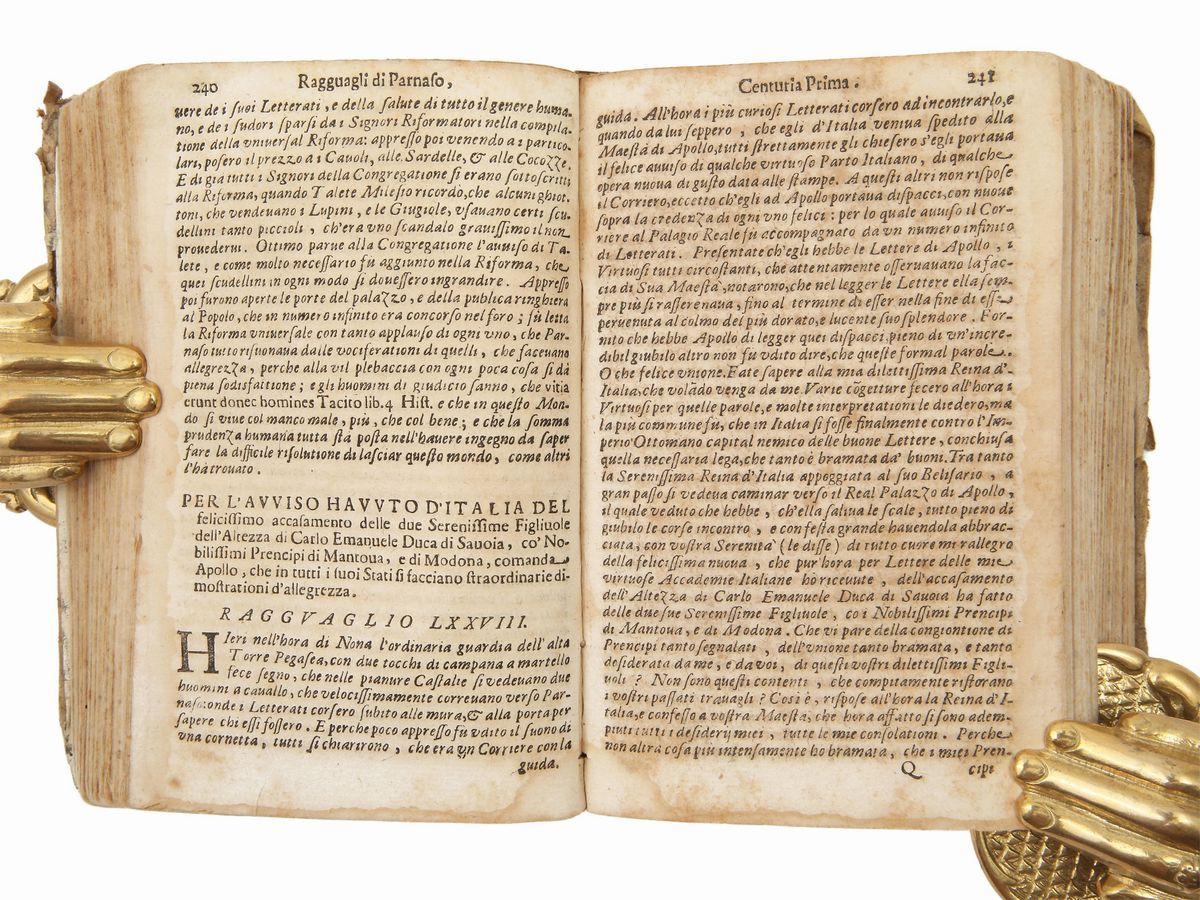 240 Ragguagli di Parnaso,
uere de i suoi Letterati, e della salute di tutto il genere huma-
no, e de i sudori sparsi da i Signori Riformatori nella compila-
tione della vniuersal Riforma: appresso poi venendo a i partico-
lari, posero il prezzo a i Cauoli, alle Sardelle, & alle Cocozze.
E di gia tutti i Signori della Congregatione si erano sottoscritti
alla Riforma, quando Talete Milesio ricordò, che alcuni ghiot-
toni, che vendeuano i Lupini, e le Giugiole, vsauano certi scu-
dellini tanto piccioli, ch'era vno scandalo grauissimo il non
prouederui. Ottimo parue alla Congregatione l'auuiso di Ta-
lete, e come molto necessario fù aggiunto nella Riforma, che
quei scudellini in ogni modo si douessero ingrandire. Appresso
poi furono aperte le porte del palazzo, e della publica ringhiera
al Popolo, che in numero infinito era concorso nel foro; fù letta
la Riforma vniuersale con tanto applauso di ogni vno, che Par-
naso tutto risuonaua dalle vociferationi di quelli, che faceuano
allegrezza, perche alla vil plebaccia con ogni poca cosa si dà
piena sodisfattione; e gli huomini di giudicio sanno, che vitia
erunt donec homines Tacito lib. 4 Hist. e che in questo Mon-
do si viue col manco male, più, che col bene; e che la somma
prudenza humana tutta stà posta nell'hauere ingegno da saper
fare la difficile risolutione di lasciar questo mondo, come altri
l'hà trouato.
PER L'AVVISO HAVVTO D'ITALIA DEL
felicissimo accasamento delle due Serenissime Figliuole
dell'Altezza di Carlo Emanuele Duca di Sauoia, co' No-
bilissimi Prencipi di Mantoua, e di Modona, comanda
Apollo, che in tutti i suoi Stati si facciano straordinarie di-
mostrationi d'allegrezza.
RAGGVAGLIO LXXVIII.
HIeri nell'hora di Nona l'ordinaria guardia dell'alta
Torre Pegasea, con due tocchi di campana a martello
fece segno, che nelle pianure Castalie si vedeuano due
huomini a cauallo, che velocissimamente correuano verso Par-
naso: onde i Letterati corsero subito alle mura, & alla porta per
sapere chi essi fossero. E perche poco appresso fù vdito il suono di
vna cornetta, tutti si chiarirono, che era vn Corriere con la
guida.
Centuria Prima. 241
guida. All'hora i più curiosi Letterati corsero ad incontrarlo, e
quando da lui seppero, che egli d'Italia veniua spedito alla
Maestà di Apollo, tutti strettamente gli chiesero s'egli portaua
il felice auuiso di qualche virtuoso Parto Italiano, di qualche
opera nuoua di gusto data alle stampe. A questi altri non rispose
il Corriero, eccetto ch'egli ad Apollo portaua dispacci, con nuoue
sopra la credenza di ogni vno felici: per lo quale auuiso il Cor-
riere al Palagio Reale fù accompagnato da vn numero infinito
di Letterati. Presentate ch'egli hebbe le Lettere di Apollo, i
Virtuosi tutti circostanti, che attentamente osseruauano la fac-
cia di Sua Maestà, notarono, che nel legger le Lettere ella sem-
pre più si rasserenaua, fino al termine di esser nella fine di esse
peruenuta al colmo del più dorato, e lucente suo splendore. For-
nito che hebbe Apollo di legger quei dispacci, pieno di vn'incre-
dibil giubilo altro non fù vdito dire, che queste formal parole.
O che felice vnione. Fate sapere alla mia dilettissima Reina d'-
Italia, che volãdo venga da me. Varie cõgetture fecero all'hora i
Virtuosi per quelle parole, e molte interpretationi le diedero, ma
la più commune fù, che in Italia si fosse finalmente contro l'Im-
perio Ottomano capital nemico delle buone Lettere, conchiusa
quella necessaria lega, che tanto è bramata da' buoni. Tra tanto
la Serenissima Reina d'Italia appoggiata al suo Belisario, a
gran passo si vedeua caminar verso il Real Palazzo di Apollo,
il quale veduto che hebbe, ch'ella saliua le scale, tutto pieno di
giubilo le corse incontro, e con festa grande hauendola abbrac-
ciata, con vostra Serenità (le disse) di tutto cuore mi rallegro
della felicissima nuoua, che pur'hora per Lettere delle mie
virtuose Accademie Italiane hò riceuute, dell'accasamento
dell'Altezza di Carlo Emanuele Duca di Sauoia ha fatto
delle due sue Serenissime Figliuole, co i Nobilissimi Prencipi
di Mantoua, e di Modona. Che vi pare della congiontione di
Prencipi tanto segnalati, dell'vnione tanto bramata, e tanto
desiderata da me, e da voi, di questi vostri dilettissimi Figli-
uoli? Non sono questi contenti, che compitamente ristorano
i vostri passati trauagli? Cosi è, rispose all'hora la Reina d'I-
talia, e confesso a vostra Maestà, che hora affatto si sono adem-
piuti tutti i desiderij miei, tutte le mie consolationi. Perche
non altra cosa più intensamente ho bramata, che i miei Pren-
Q cipi